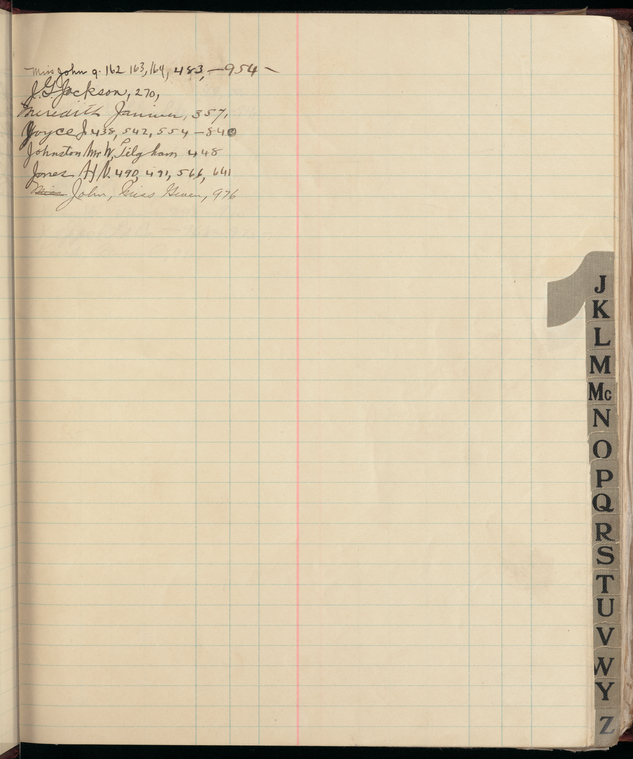 Miss John g. 162 163, 164, 483, — 954 —
J. G. Jackson, 270,
Meredith Janvier, 357,
Joyce J. 438, 542, 554 — 840
Johnston Mr W. Tilgham 448
Jones H N. 490, 491, 566, 641
Miss John, Miss Gwen, 976
J
K
L
M
Mc
N
O
P
Q
R
S
T
U
V
W
Y
Z